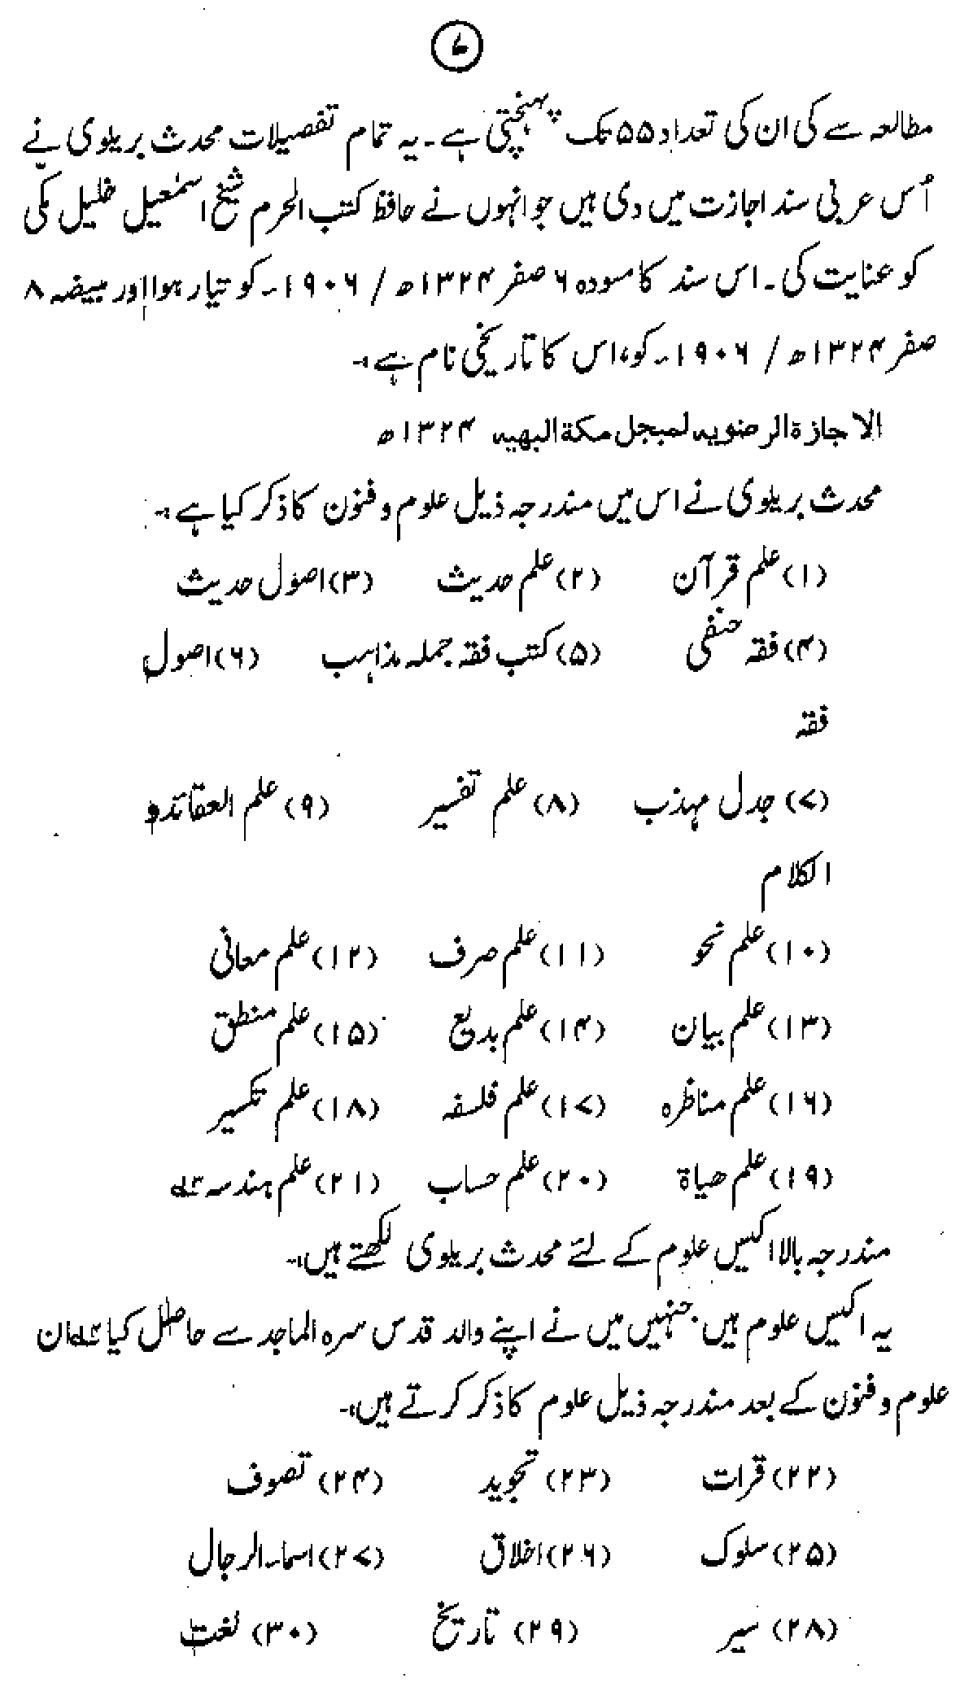 ۷
مطالعہ سے کی ان کی تعداد ۵۵ تک پہنچتی ہے۔ یہ تمام تفصیلات محدث بریلوی نے
اُس عربی سند اجازت میں دی ہیں جو انہوں نے حافظ کتب الحرم شیخ اسمٰعیل خلیل مکی
کو عنایت کی۔ اس سند کا مسودہ ۶ صفر ۱۳۲۴ھ / ۱۹۰۶۔ کو تیار ہوا اور مبیضہ ۸
صفر ۱۳۲۴ھ / ۱۹۰۶۔ کو، اس کا تاریخی نام ہے :۔
الاجازۃ الرضویہ لمبجل مکۃ البہیہ ۱۳۲۴ھ
محدث بریلوی نے اس میں مندرجہ ذیل علوم و فنون کا ذکر کیا ہے :۔
(۱) علم قرآن (۲) علم حدیث (۳) اصول حدیث
(۴) فقہ حنفی (۵) کتب فقہ جملہ مذاہب (۶) اصول
فقہ
(۷) جدل مہذب (۸) علم تفسیر (۹) علم العقائد و
الکلام
(۱۰) علم نحو (۱۱) علم صرف (۱۲) علم معانی
(۱۳) علم بیان (۱۴) علم بدیع (۱۵) علم منطق
(۱۶) علم مناظرہ (۱۷) علم فلسفہ (۱۸) علم تکسیر
(۱۹) علم ھیاۃ (۲۰) علم حساب (۲۱) علم ہندسہ
مندرجہ بالا اکیس علوم کے لئے محدث بریلوی لکھتے ہیں :۔
یہ اکیس علوم ہیں جنہیں میں نے اپنے والد قدس سرہ الماجد سے حاصل کیا ان
علوم و فنون کے بعد مندرجہ ذیل علوم کا ذکر کرتے ہیں :۔
(۲۲) قرات (۲۳) تجوید (۲۴) تصوف
(۲۵) سلوک (۲۶) اخلاق (۲۷) اسماء الرجال
(۲۸) سیر (۲۹) تاریخ (۳۰) لغت